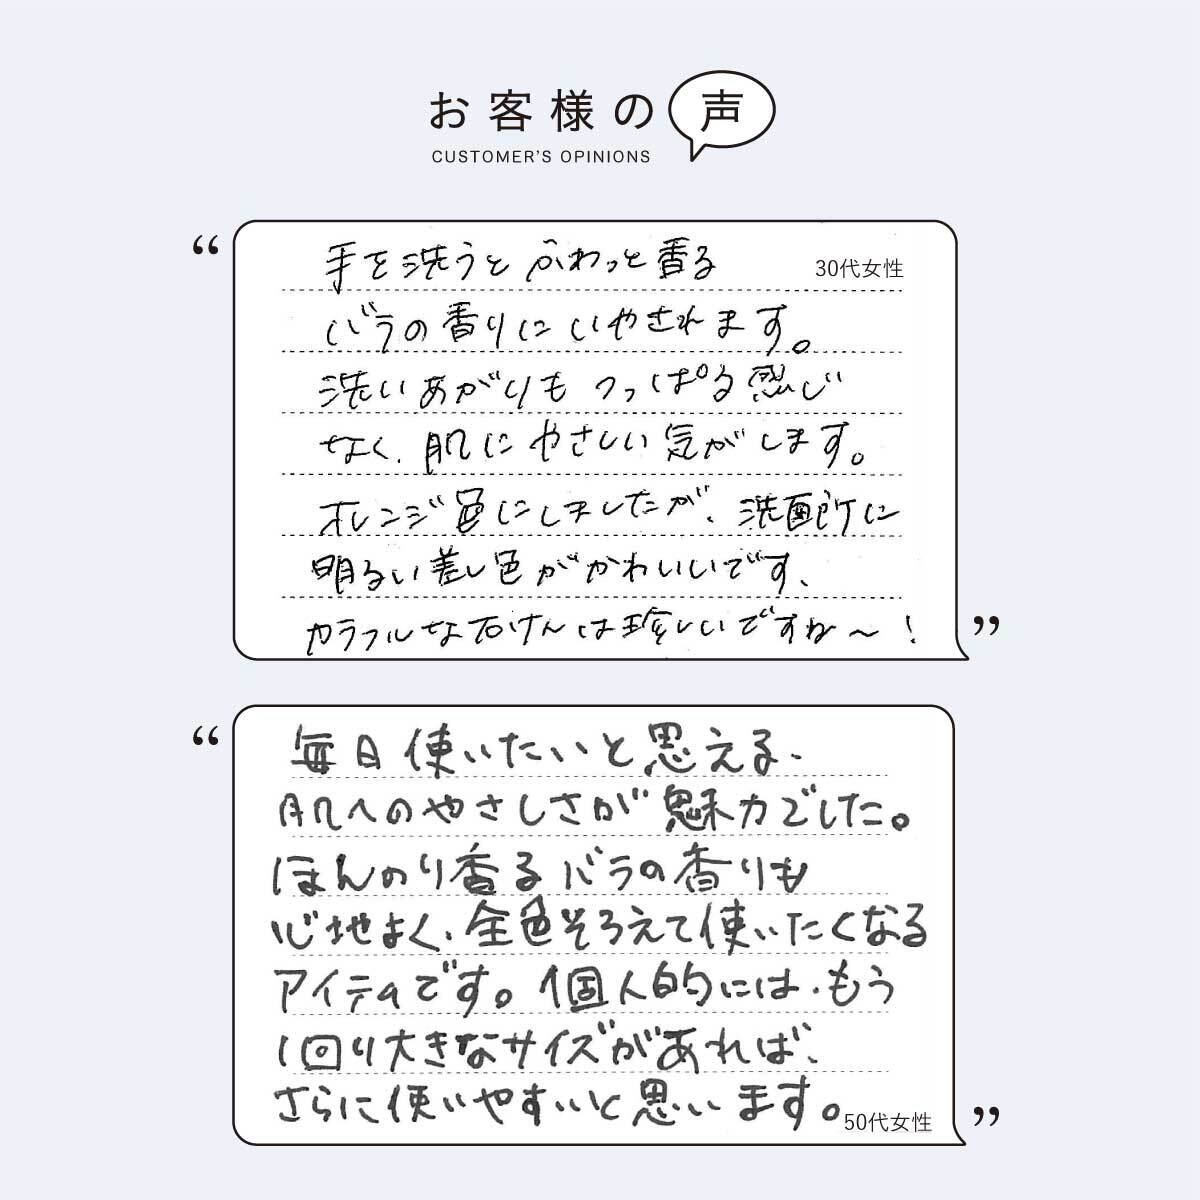 お客様の声
CUSTOMER'S OPINIONS
“
手を洗うと ふわっと香る
30代女性
バラの香りにいやされます。
洗いあがりも つっぱる感じ
なく、肌に やさしい気がします。
オレンジ色にしましたが、洗面所に
明るい差し色がかわいいです、
カラフルな石けんは珍しいですね〜！
”
“
毎日使いたいと思える、
肌へのやさしさが魅力でした。
ほんのり香るバラの香りも
心地よく、全色そろえて使いたくなる
アイテムです。個人的には、もう
1回り大きなサイズがあれば、
さらに使いやすいと思います。
50代女性
”